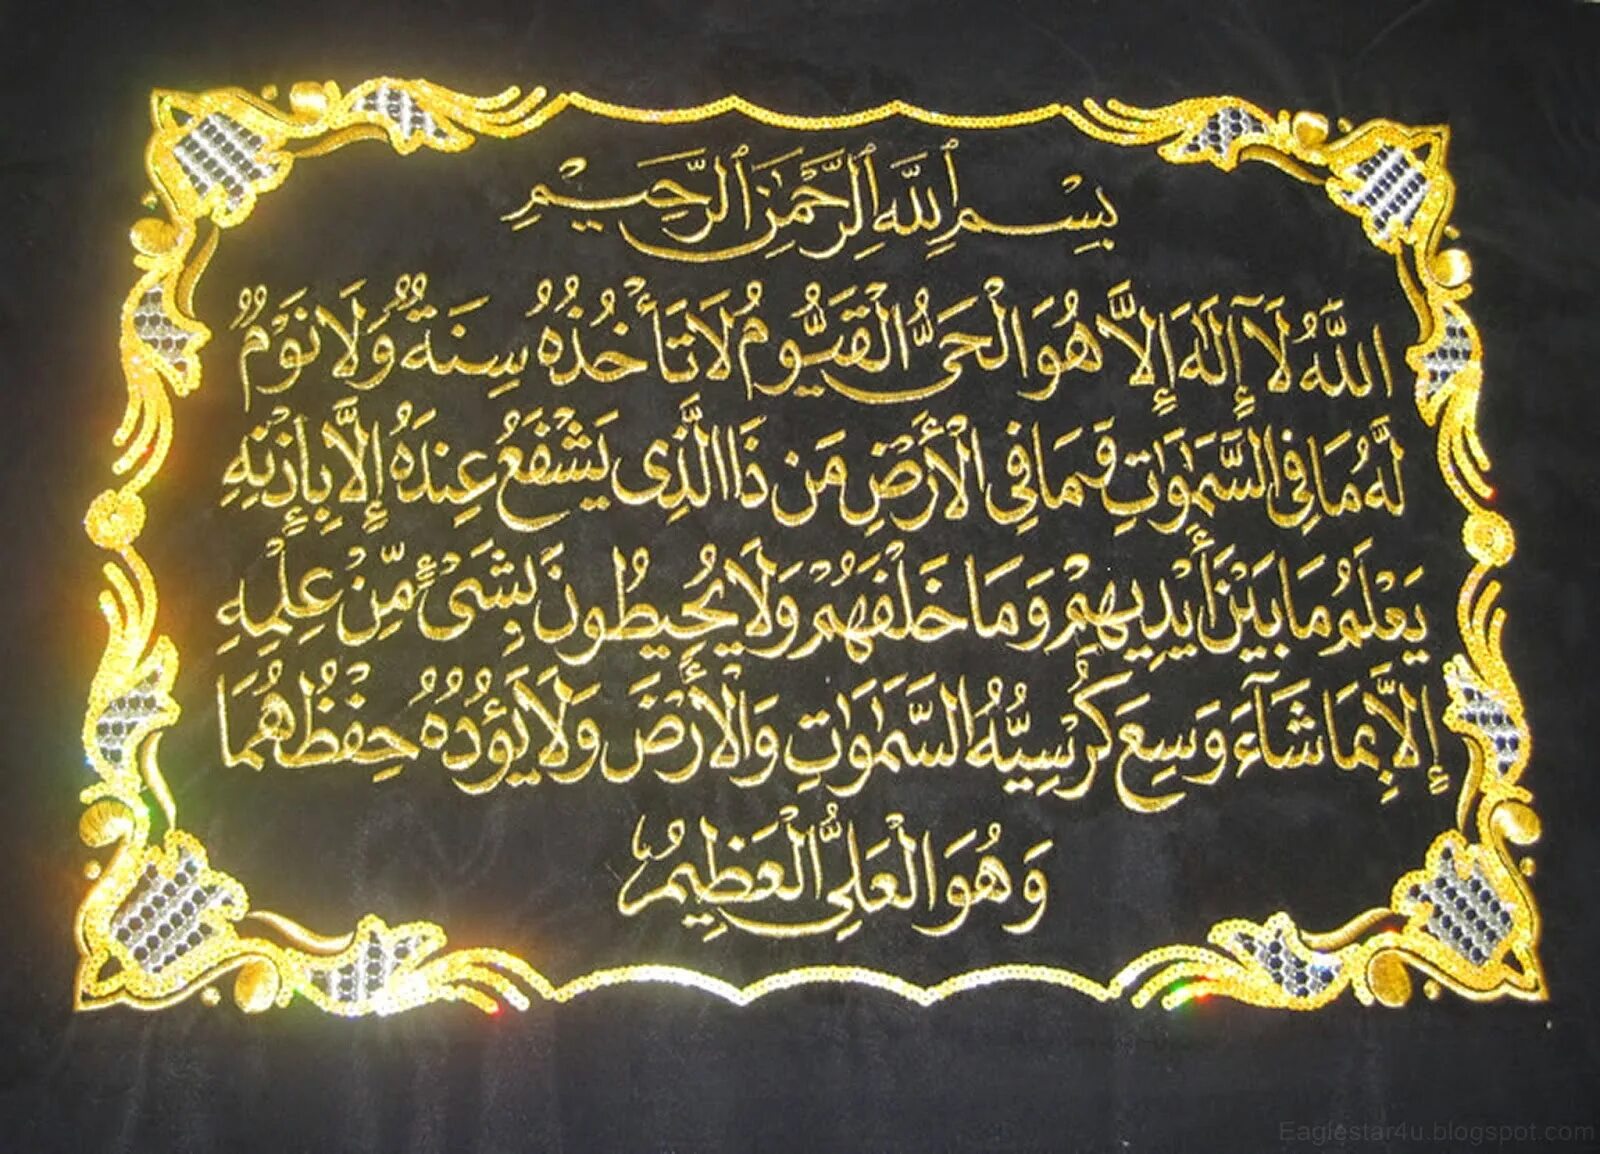 بِسْمِ ٱللَّهِ ٱلرَّحْمَٰنِ ٱلرَّحِيمِ
اللَّهُ لَآ إِلَٰهَ إِلَّا هُوَ الْحَىُّ الْقَيُّومُ لَا تَأْخُذُهُ سِنَةٌ وَلَا نَوْمٌ
لَّهُ مَا فِى السَّمَٰوَٰتِ وَمَا فِى الْأَرْضِ مَن ذَا الَّذِى يَشْفَعُ عِندَهُ إِلَّا بِإِذْنِهِ
يَعْلَمُ مَا بَيْنَ أَيْدِيهِمْ وَمَا خَلْفَهُمْ وَلَا يُحِيطُونَ بِشَىْءٍ مِّنْ عِلْمِهِ
إِلَّا بِمَا شَآءَ وَسِعَ كُرْسِيُّهُ السَّمَٰوَٰتِ وَالْأَرْضَ وَلَا يَؤُدُهُ حِفْظُهُمَا
وَهُوَ الْعَلِىُّ الْعَظِيمُ
Eaglestar4u.blogspot.com